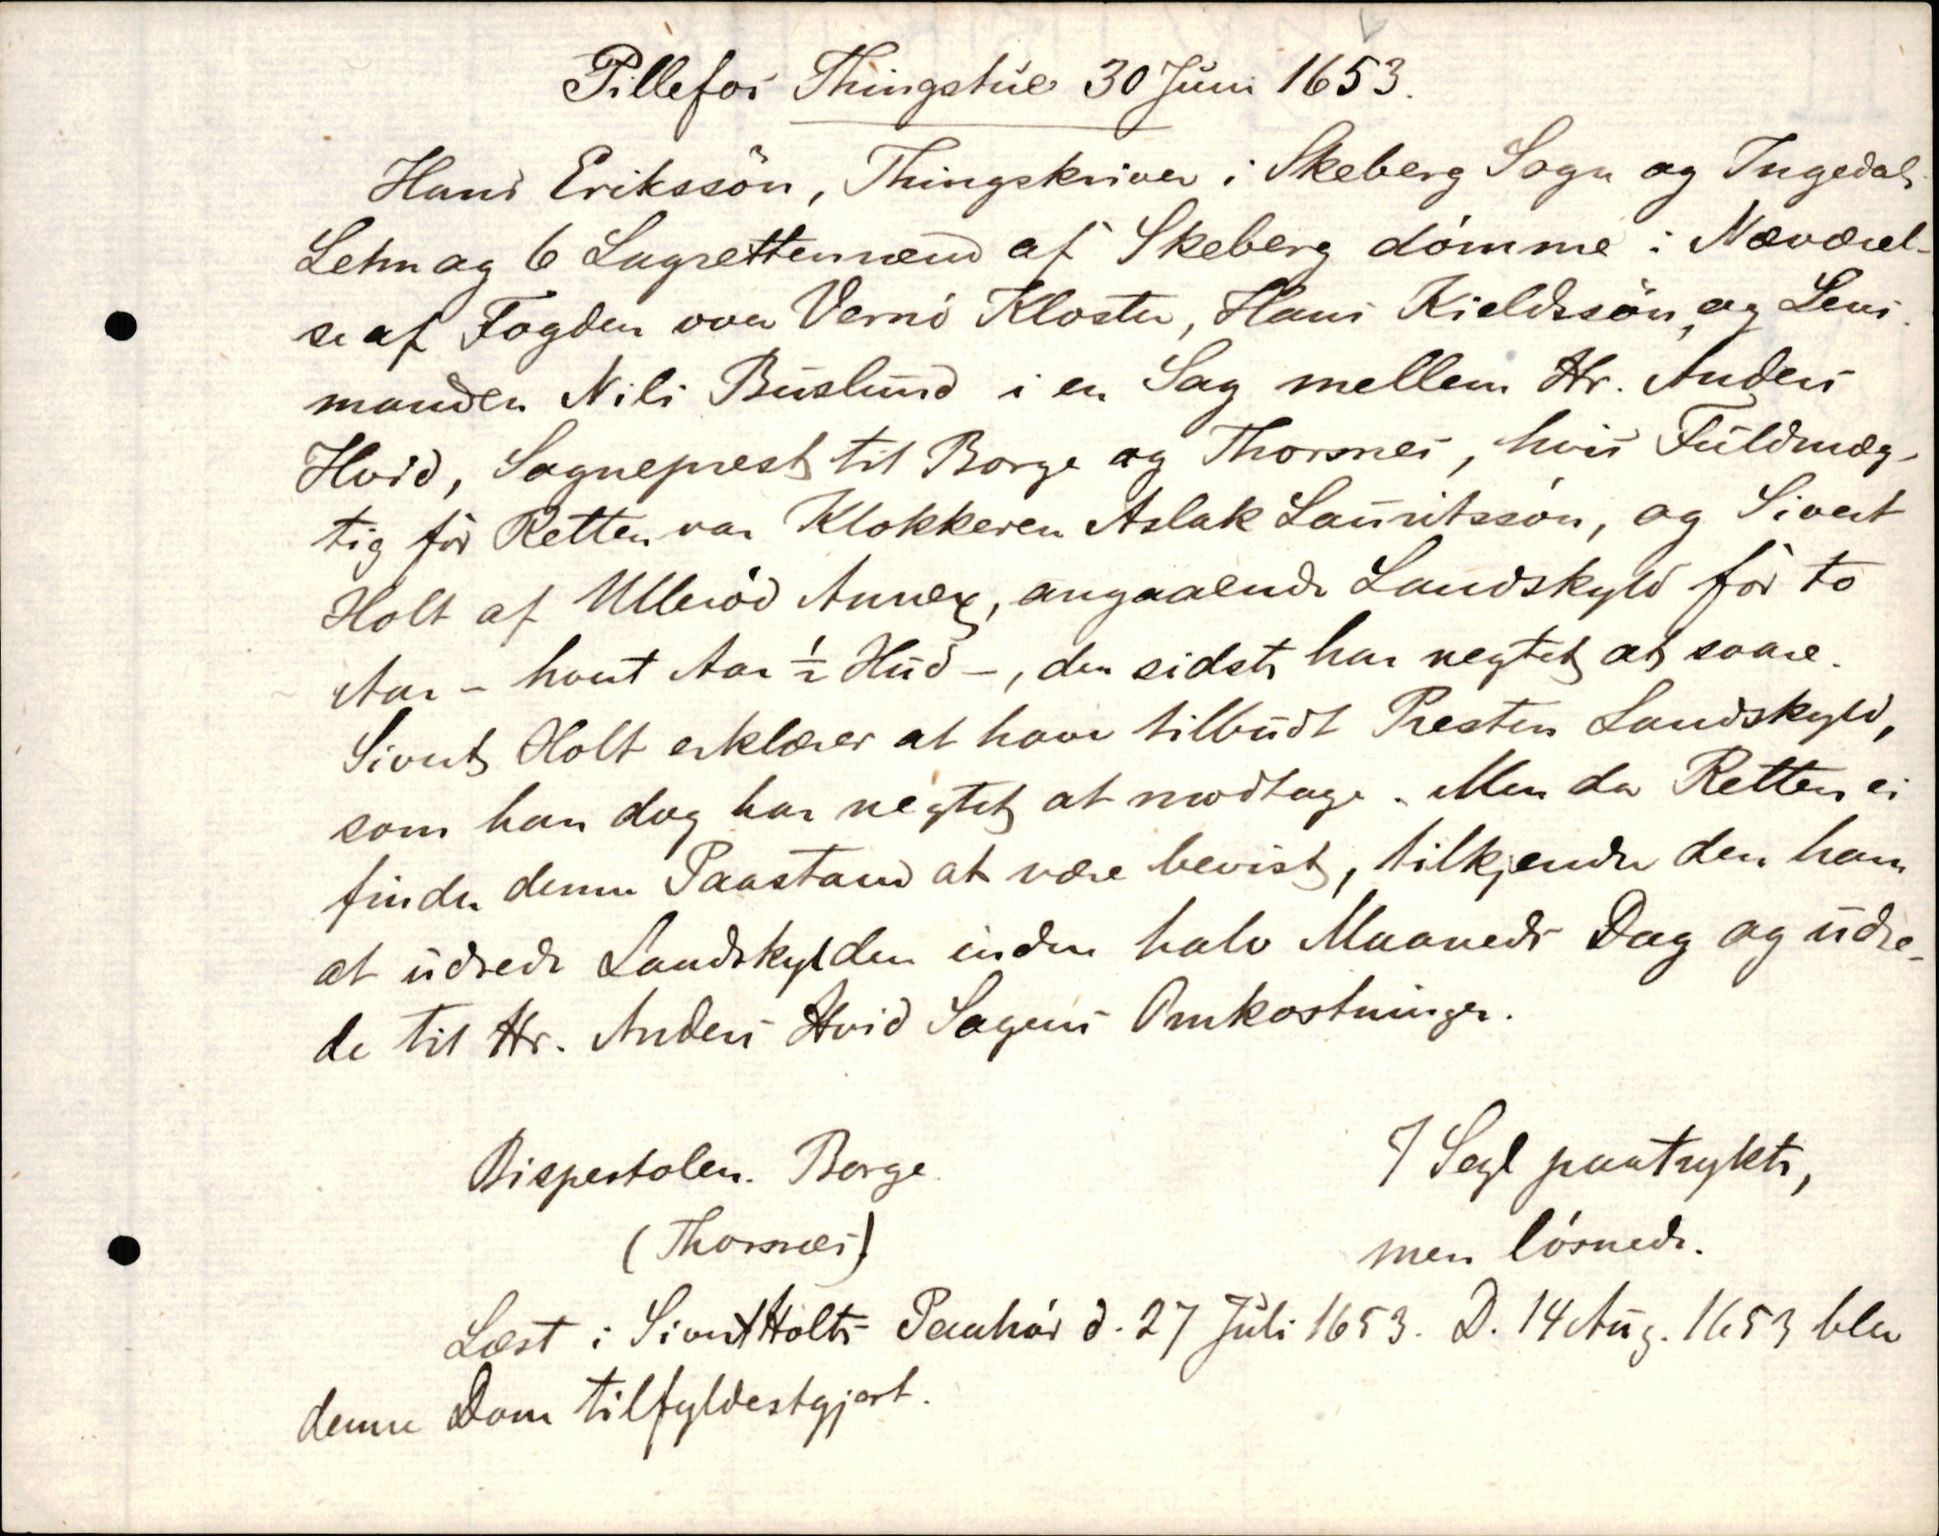 Pillefos Thingstue 30 Juni 1653.
Hans Erikssön, Thingskriver i Skeberg Sogn og Ingedals
Lehn og 6 Lagrettemænd af Skeberg dömme i Næværel-
se af Fogden over Vernö Kloster, Hans Kieldssön, og Lens-
manden Nils Buslund i en Sag mellem Hr. Anders
Hvid, Sogneprest til Borge og Thorsnes, hvis Fuldmæg-
tig för Retten var Klokkeren Aslak Lauritssön, og Sivert
Holt af Ulleröd Annex, angaaende Landskyld för to
Aar - hvert Aar ½ Hud -, den sidste har negtet at svare.
Sivert Holt erklærer at have tilbudt Presten Landskyld,
som han dog har negtet at modtage. Men da Retten ei
finder denne Paastand at være bevist, tilkjender den ham
at udrede Landskylden inden halv Maaneds Dag og udre-
de til Hr. Anders Hvid Sagens Omkostninger.
Bispestolen. Borge
(Thorsnes)
7 Segl paatrykte,
men lösnede.
Læst i Sivert Holts Paahör d. 27 Juli 1653. D. 14 Aug. 1653 blev
denne Dom tilfyldestgjort.